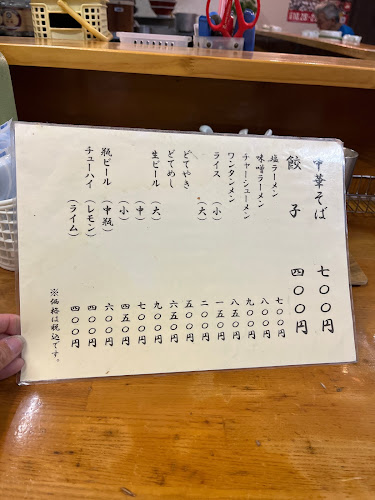 中華そば 七〇〇円
餃子 四〇〇円
塩ラーメン 七〇〇円
味噌ラーメン 八〇〇円
チャーシューメン 九〇〇円
ワンタンメン 八五〇円
ライス (小) 一五〇円
(大) 二〇〇円
どてやき 五〇〇円
どてめし 六五〇円
生ビール (大) 九〇〇円
(中) 七〇〇円
(小) 四五〇円
瓶ビール (中瓶) 六〇〇円
チューハイ (レモン) 四〇〇円
(ライム) 四〇〇円
※価格は税込です。